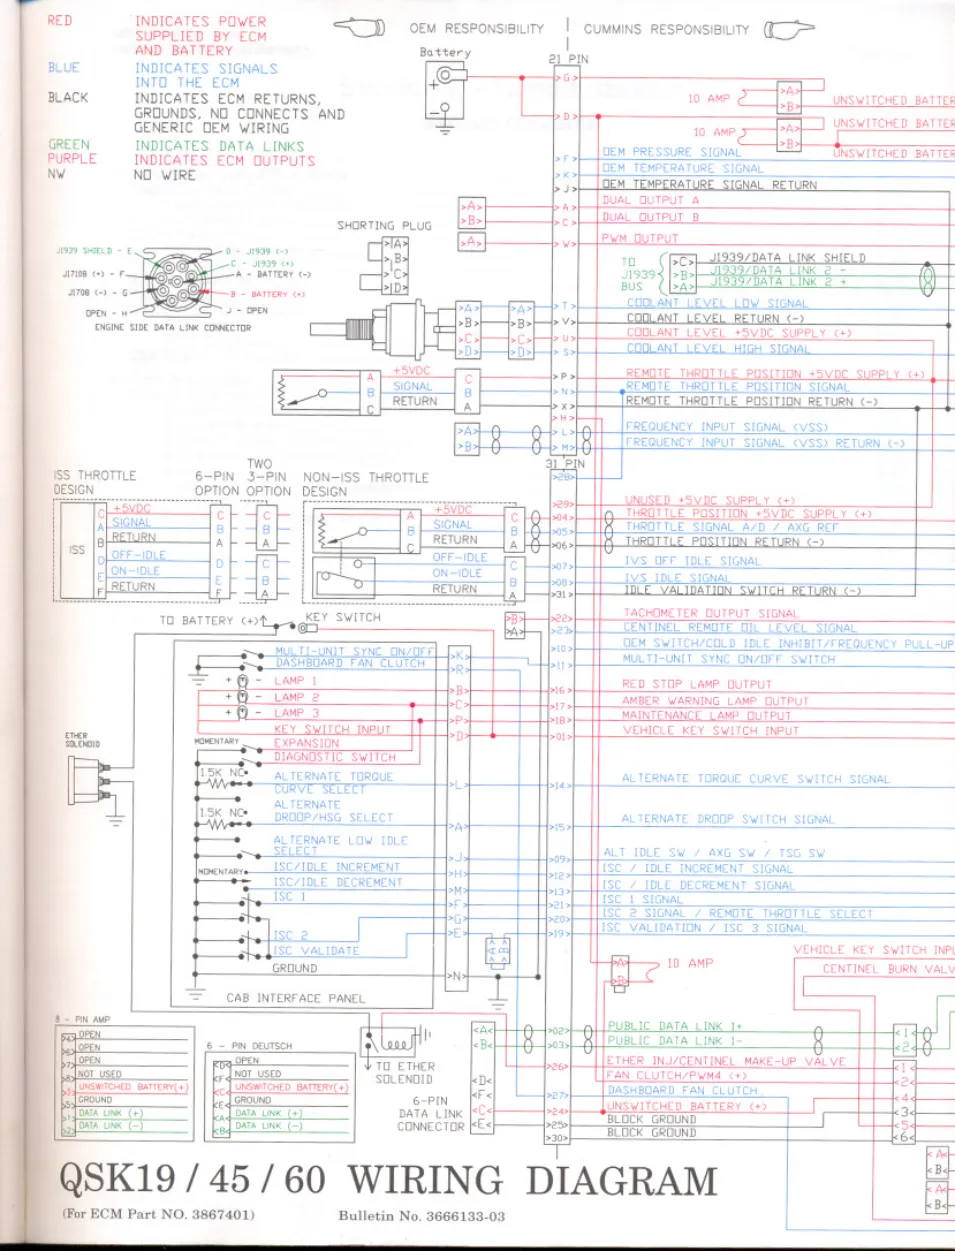 RED INDICATES POWER
SUPPLIED BY ECM
AND BATTERY
BLUE INDICATES SIGNALS
INTO THE ECM
BLACK INDICATES ECM RETURNS,
GROUNDS, NO CONNECTS AND
GENERIC OEM WIRING
GREEN INDICATES DATA LINKS
PURPLE INDICATES ECM OUTPUTS
NW NO WIRE
OEM RESPONSIBILITY
CUMMINS RESPONSIBILITY
Battery
21 PIN
>G>
>D>
10 AMP
>A>
>B>
UNSWITCHED BATTER
UNSWITCHED BATTER
10 AMP
>A>
>B>
UNSWITCHED BATTER
>F> OEM PRESSURE SIGNAL
>K> OEM TEMPERATURE SIGNAL
>J> OEM TEMPERATURE SIGNAL RETURN
>A> >A> DUAL OUTPUT A
>B> >C> DUAL OUTPUT B
>A> >W> PWM OUTPUT
SHORTING PLUG
>A>
>B>
>C>
>D>
TO
J1939
BUS
>C> J1939/DATA LINK SHIELD
>B> J1939/DATA LINK 2 -
>A> J1939/DATA LINK 2 +
J1939 SHIELD - E
J1708 (+) - F
J1708 (-) - G
OPEN - H
D - J1939 (-)
C - J1939 (+)
A - BATTERY (-)
B - BATTERY (+)
J - OPEN
ENGINE SIDE DATA LINK CONNECTOR
>A> >A> >T> COOLANT LEVEL LOW SIGNAL
>B> >B> >V> COOLANT LEVEL RETURN (-)
>C> >C> >U> COOLANT LEVEL +5VDC SUPPLY (+)
>D> >D> >S> COOLANT LEVEL HIGH SIGNAL
A +5VDC C >P> REMOTE THROTTLE POSITION +5VDC SUPPLY (+)
B SIGNAL B >N> REMOTE THROTTLE POSITION SIGNAL
C RETURN A >X> REMOTE THROTTLE POSITION RETURN (-)
>H>
>A> >L> FREQUENCY INPUT SIGNAL (VSS)
>B> >M> FREQUENCY INPUT SIGNAL (VSS) RETURN (-)
31 PIN
>28>
ISS THROTTLE
DESIGN
6-PIN
OPTION
TWO
3-PIN
OPTION
NON-ISS THROTTLE
DESIGN
ISS
C +5VDC C C
A SIGNAL B B
B RETURN A A
D OFF-IDLE D C
E ON-IDLE E B
F RETURN F A
A +5VDC C
B SIGNAL B
C RETURN A
OFF-IDLE C
ON-IDLE B
RETURN A
>29> UNUSED +5VDC SUPPLY (+)
>04> THROTTLE POSITION +5VDC SUPPLY (+)
>05> THROTTLE SIGNAL A/D / AXG REF
>06> THROTTLE POSITION RETURN (-)
>07> IVS OFF IDLE SIGNAL
>08> IVS IDLE SIGNAL
>31> IDLE VALIDATION SWITCH RETURN (-)
TO BATTERY (+)
KEY SWITCH
>B> >22> TACHOMETER OUTPUT SIGNAL
>A> >23> CENTINEL REMOTE OIL LEVEL SIGNAL
>10> OEM SWITCH/COLD IDLE INHIBIT/FREQUENCY PULL-UP
MULTI-UNIT SYNC ON/OFF >K> >11> MULTI-UNIT SYNC ON/OFF SWITCH
DASHBOARD FAN CLUTCH >R>
+ - LAMP 1 >B> >16> RED STOP LAMP OUTPUT
+ - LAMP 2 >C> >17> AMBER WARNING LAMP OUTPUT
+ - LAMP 3 >P> >18> MAINTENANCE LAMP OUTPUT
KEY SWITCH INPUT >D> >01> VEHICLE KEY SWITCH INPUT
ETHER
SOLENOID
MOMENTARY EXPANSION
DIAGNOSTIC SWITCH
1.5K NC ALTERNATE TORQUE
CURVE SELECT >L> >14> ALTERNATE TORQUE CURVE SWITCH SIGNAL
ALTERNATE
1.5K NC DROOP/HSG SELECT >A> >15> ALTERNATE DROOP SWITCH SIGNAL
ALTERNATE LOW IDLE
SELECT >J> >09> ALT IDLE SW / AXG SW / TSG SW
MOMENTARY ISC/IDLE INCREMENT >H> >12> ISC / IDLE INCREMENT SIGNAL
ISC/IDLE DECREMENT >M> >13> ISC / IDLE DECREMENT SIGNAL
ISC 1 >F> >21> ISC 1 SIGNAL
>G> >20> ISC 2 SIGNAL / REMOTE THROTTLE SELECT
ISC 2 >E> >19> ISC VALIDATION / ISC 3 SIGNAL
ISC VALIDATE
GROUND >N>
CAB INTERFACE PANEL
>A>
>B>
10 AMP
VEHICLE KEY SWITCH INPU
CENTINEL BURN VALV
8 - PIN AMP
OPEN
OPEN
OPEN
NOT USED
UNSWITCHED BATTERY(+)
GROUND
DATA LINK (+)
DATA LINK (-)
6 - PIN DEUTSCH
<D< OPEN
<F< NOT USED
<C< UNSWITCHED BATTERY(+)
<E< GROUND
<A< DATA LINK (+)
<B< DATA LINK (-)
TO ETHER
SOLENOID
6-PIN
DATA LINK
CONNECTOR
<A<
<B<
<D<
<F<
<C<
<E<
>02> PUBLIC DATA LINK 1+ <1<
>03> PUBLIC DATA LINK 1- <2<
>26> ETHER INJ/CENTINEL MAKE-UP VALVE <1<
FAN CLUTCH/PWM4 (+) <2<
>27> DASHBOARD FAN CLUTCH <4<
>24> UNSWITCHED BATTERY (+) <3<
>25> BLOCK GROUND <5<
>30> BLOCK GROUND <6<
<A<
<B<
<A<
<B<
QSK19 / 45 / 60 WIRING DIAGRAM
(For ECM Part NO. 3867401) Bulletin No. 3666133-03